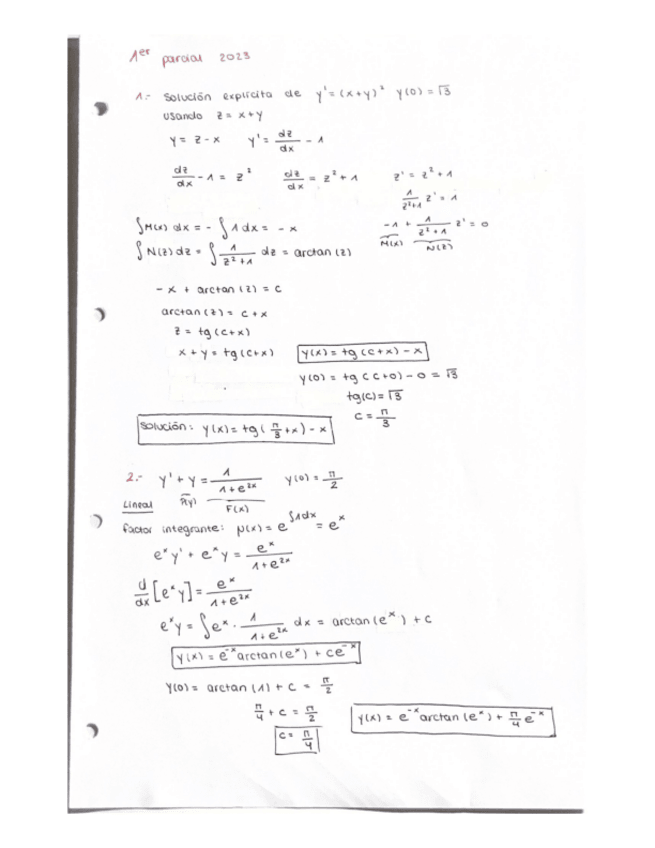 1er parcial 2023
1.- Solución explícita de y' = (x+y)² y(0) = √3
usando z = x+y
y = z - x y' = dz/dx - 1
dz/dx - 1 = z² dz/dx = z² + 1 z' = z² + 1
1/(z²+1) z' = 1
∫M(x) dx = - ∫1 dx = - x -1 + 1/(z²+1) z' = 0
M(x) N(z)
∫N(z) dz = ∫ 1/(z²+1) dz = arctan(z)
- x + arctan(z) = c
arctan(z) = c + x
z = tg(c+x)
x + y = tg(c+x) y(x) = tg(c+x) - x
y(0) = tg(c+0) - 0 = √3
tg(c) = √3
c = π/3
Solución: y(x) = tg(π/3 + x) - x
2.- y' + y = 1/(1+e^2x) y(0) = π/2
Lineal P(y) F(x)
factor integrante: μ(x) = e^∫1dx = e^x
e^x y' + e^x y = e^x/(1+e^2x)
d/dx [e^x y] = e^x/(1+e^2x)
e^x y = ∫ e^x · 1/(1+e^2x) dx = arctan(e^x) + c
y(x) = e^-x arctan(e^x) + ce^-x
y(0) = arctan(1) + c = π/2
π/4 + c = π/2 y(x) = e^-x arctan(e^x) + π/4 e^-x
c = π/4